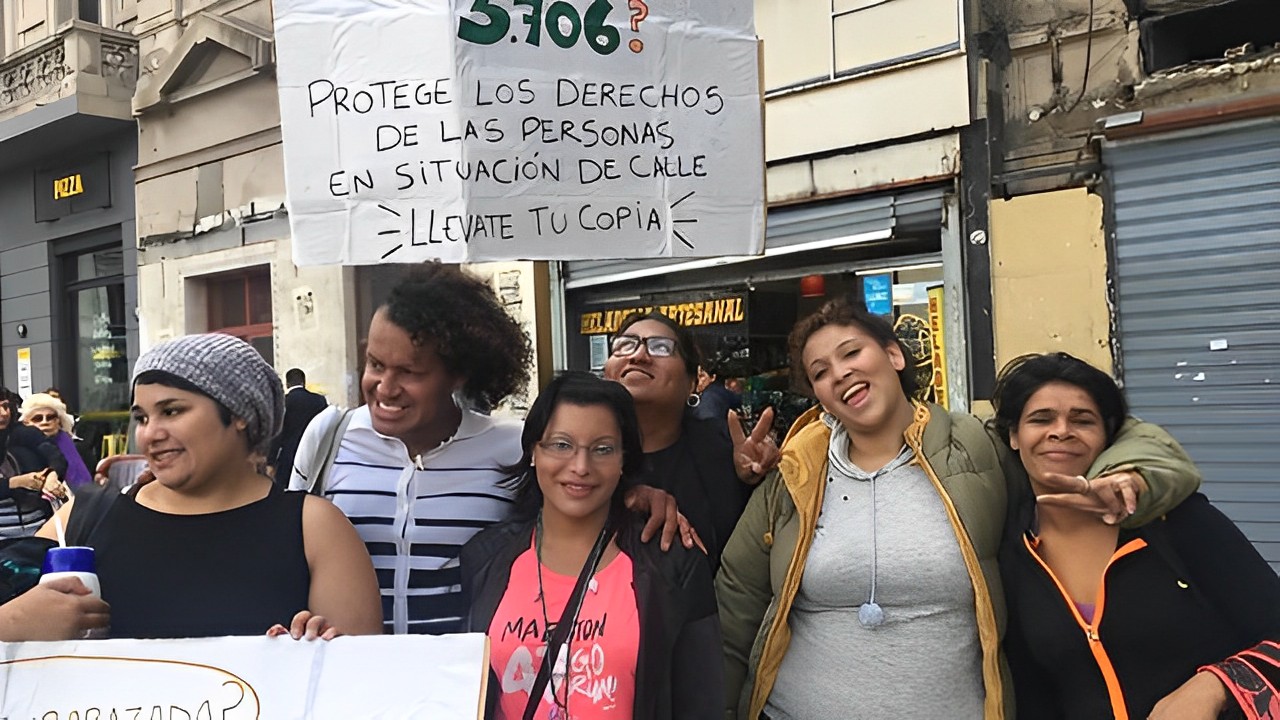 3.706?
PROTEGE LOS DERECHOS
DE LAS PERSONAS
EN SITUACIÓN DE CALLE
LLEVATE TU COPIA
PIZZA
HELADERIA ARTESANAL
MARATON
RUN!